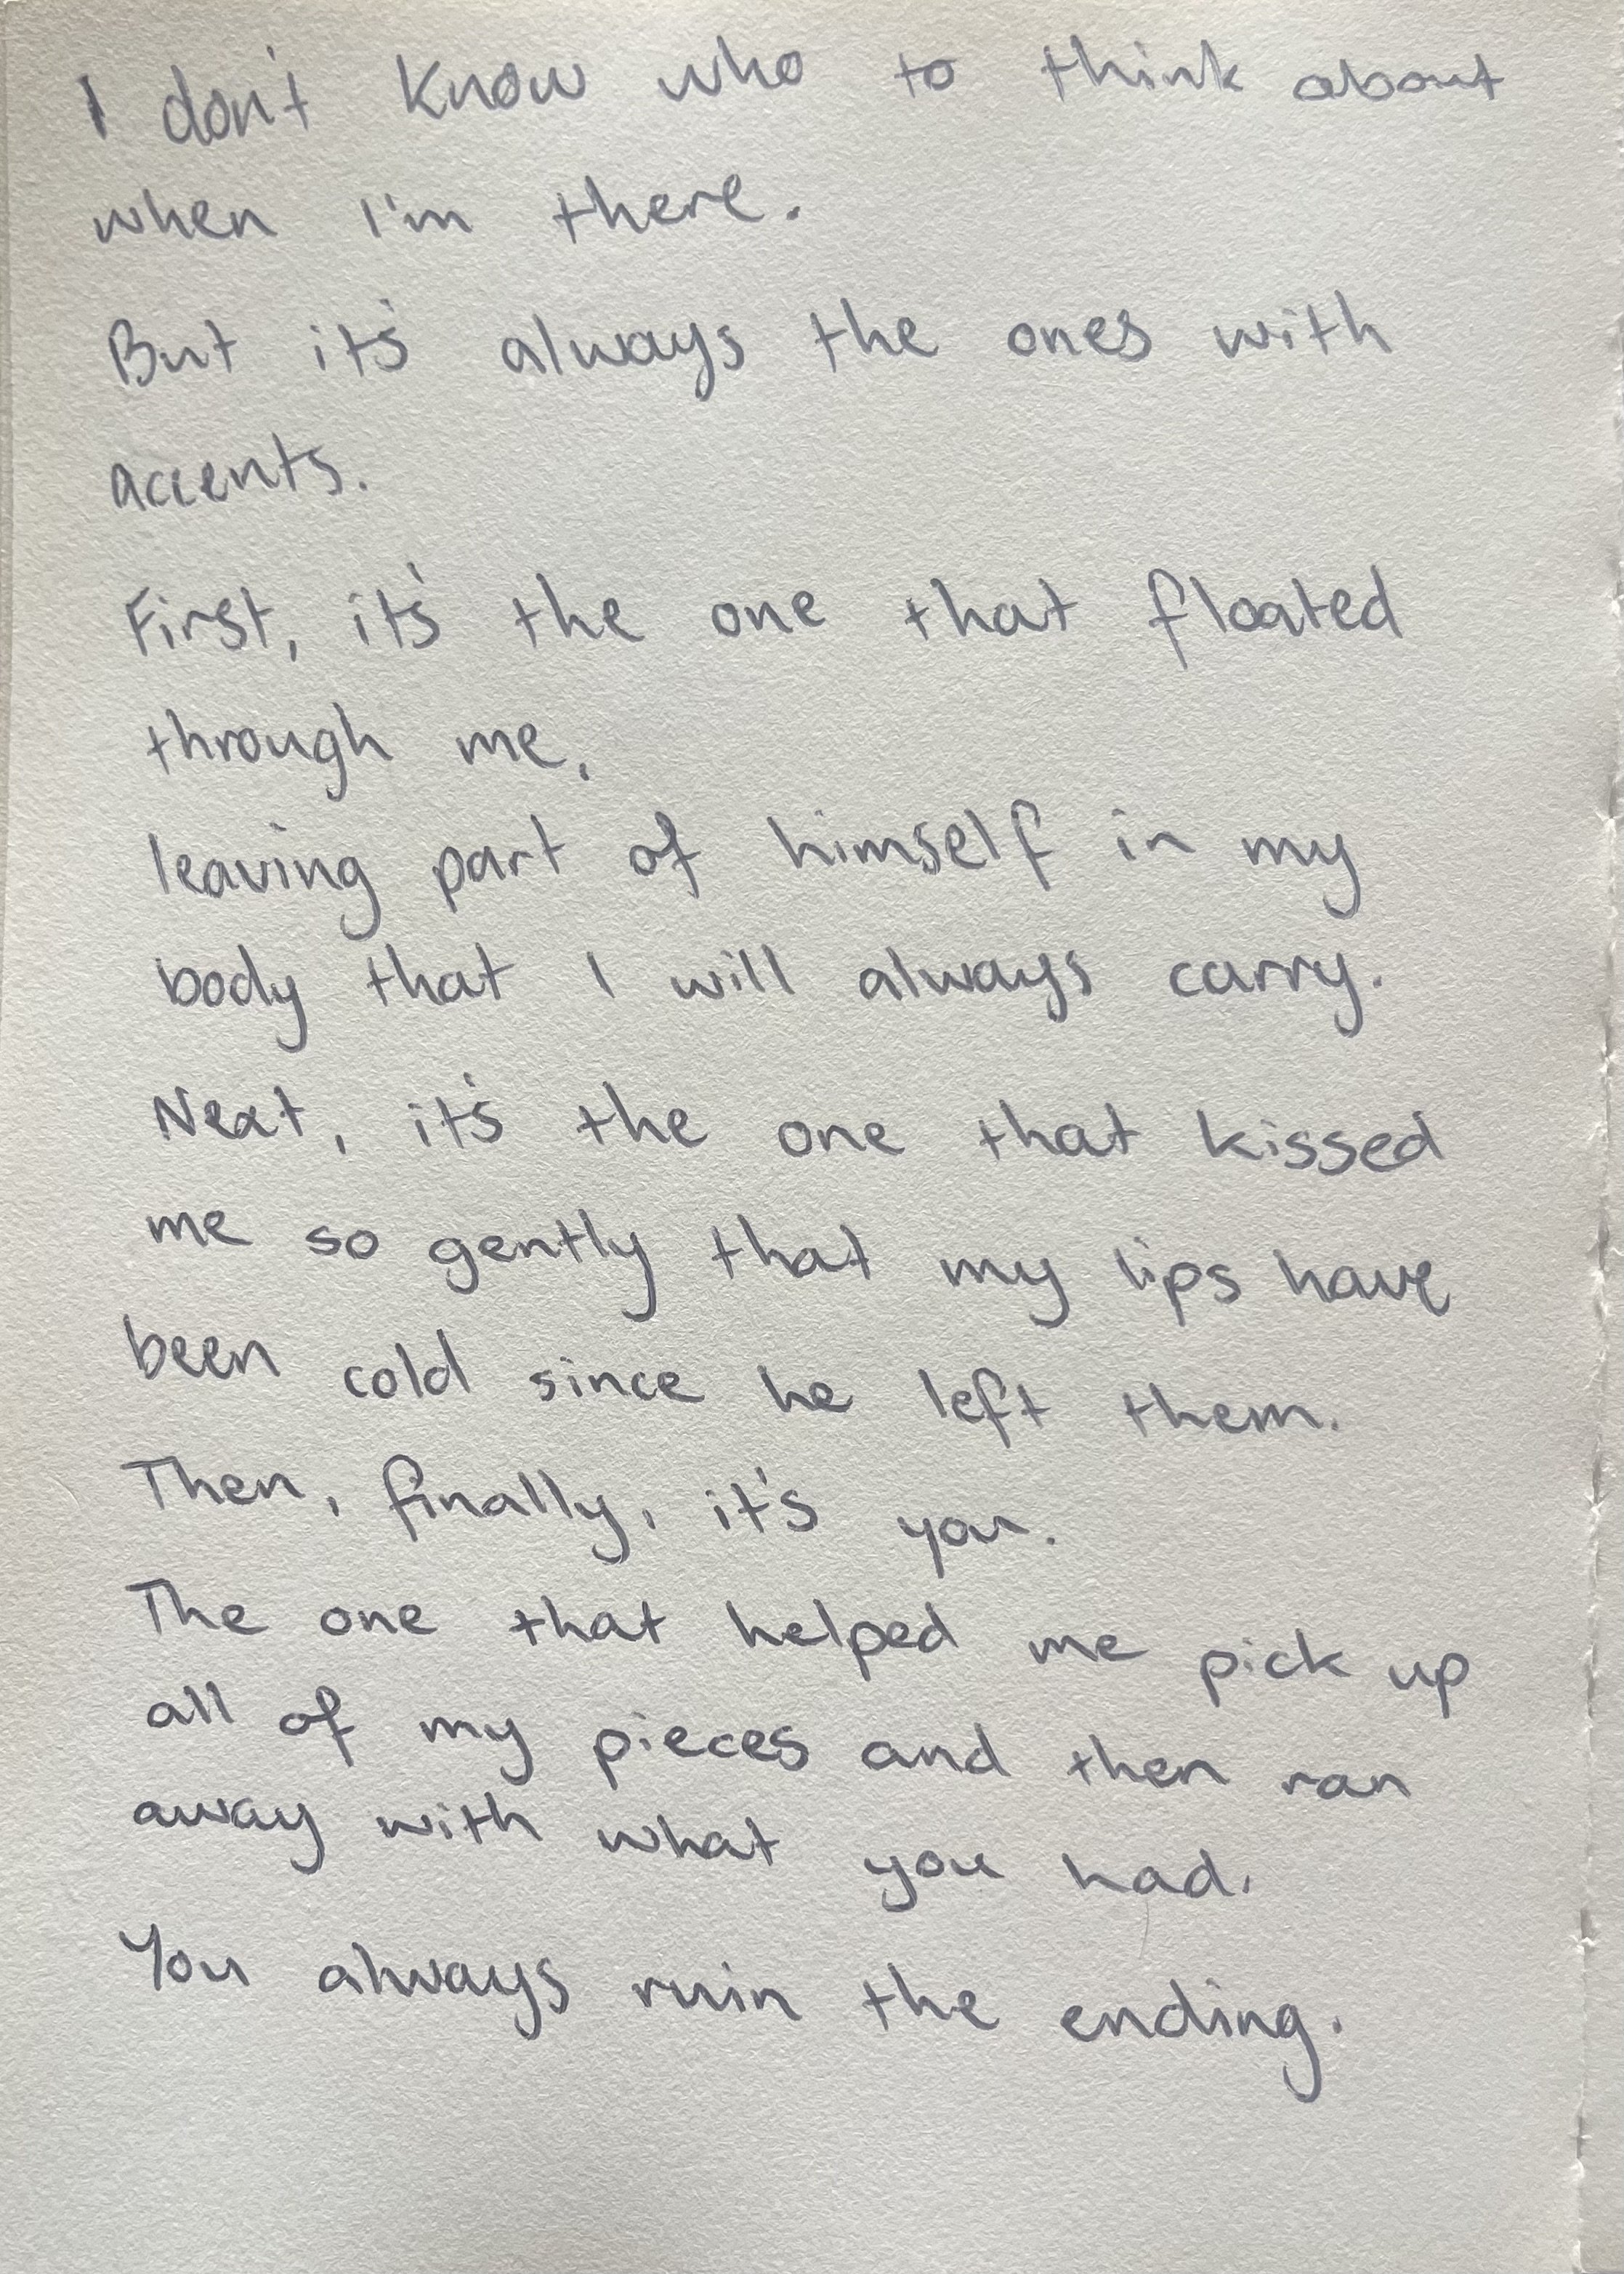 I don't know who to think about
when I'm there.
But it's always the ones with
accents.
First, it's the one that floated
through me,
leaving part of himself in my
body that I will always carry.
Next, it's the one that kissed
me so gently that my lips have
been cold since he left them.
Then, finally, it's you.
The one that helped me pick up
all of my pieces and then ran
away with what you had.
You always ruin the ending.